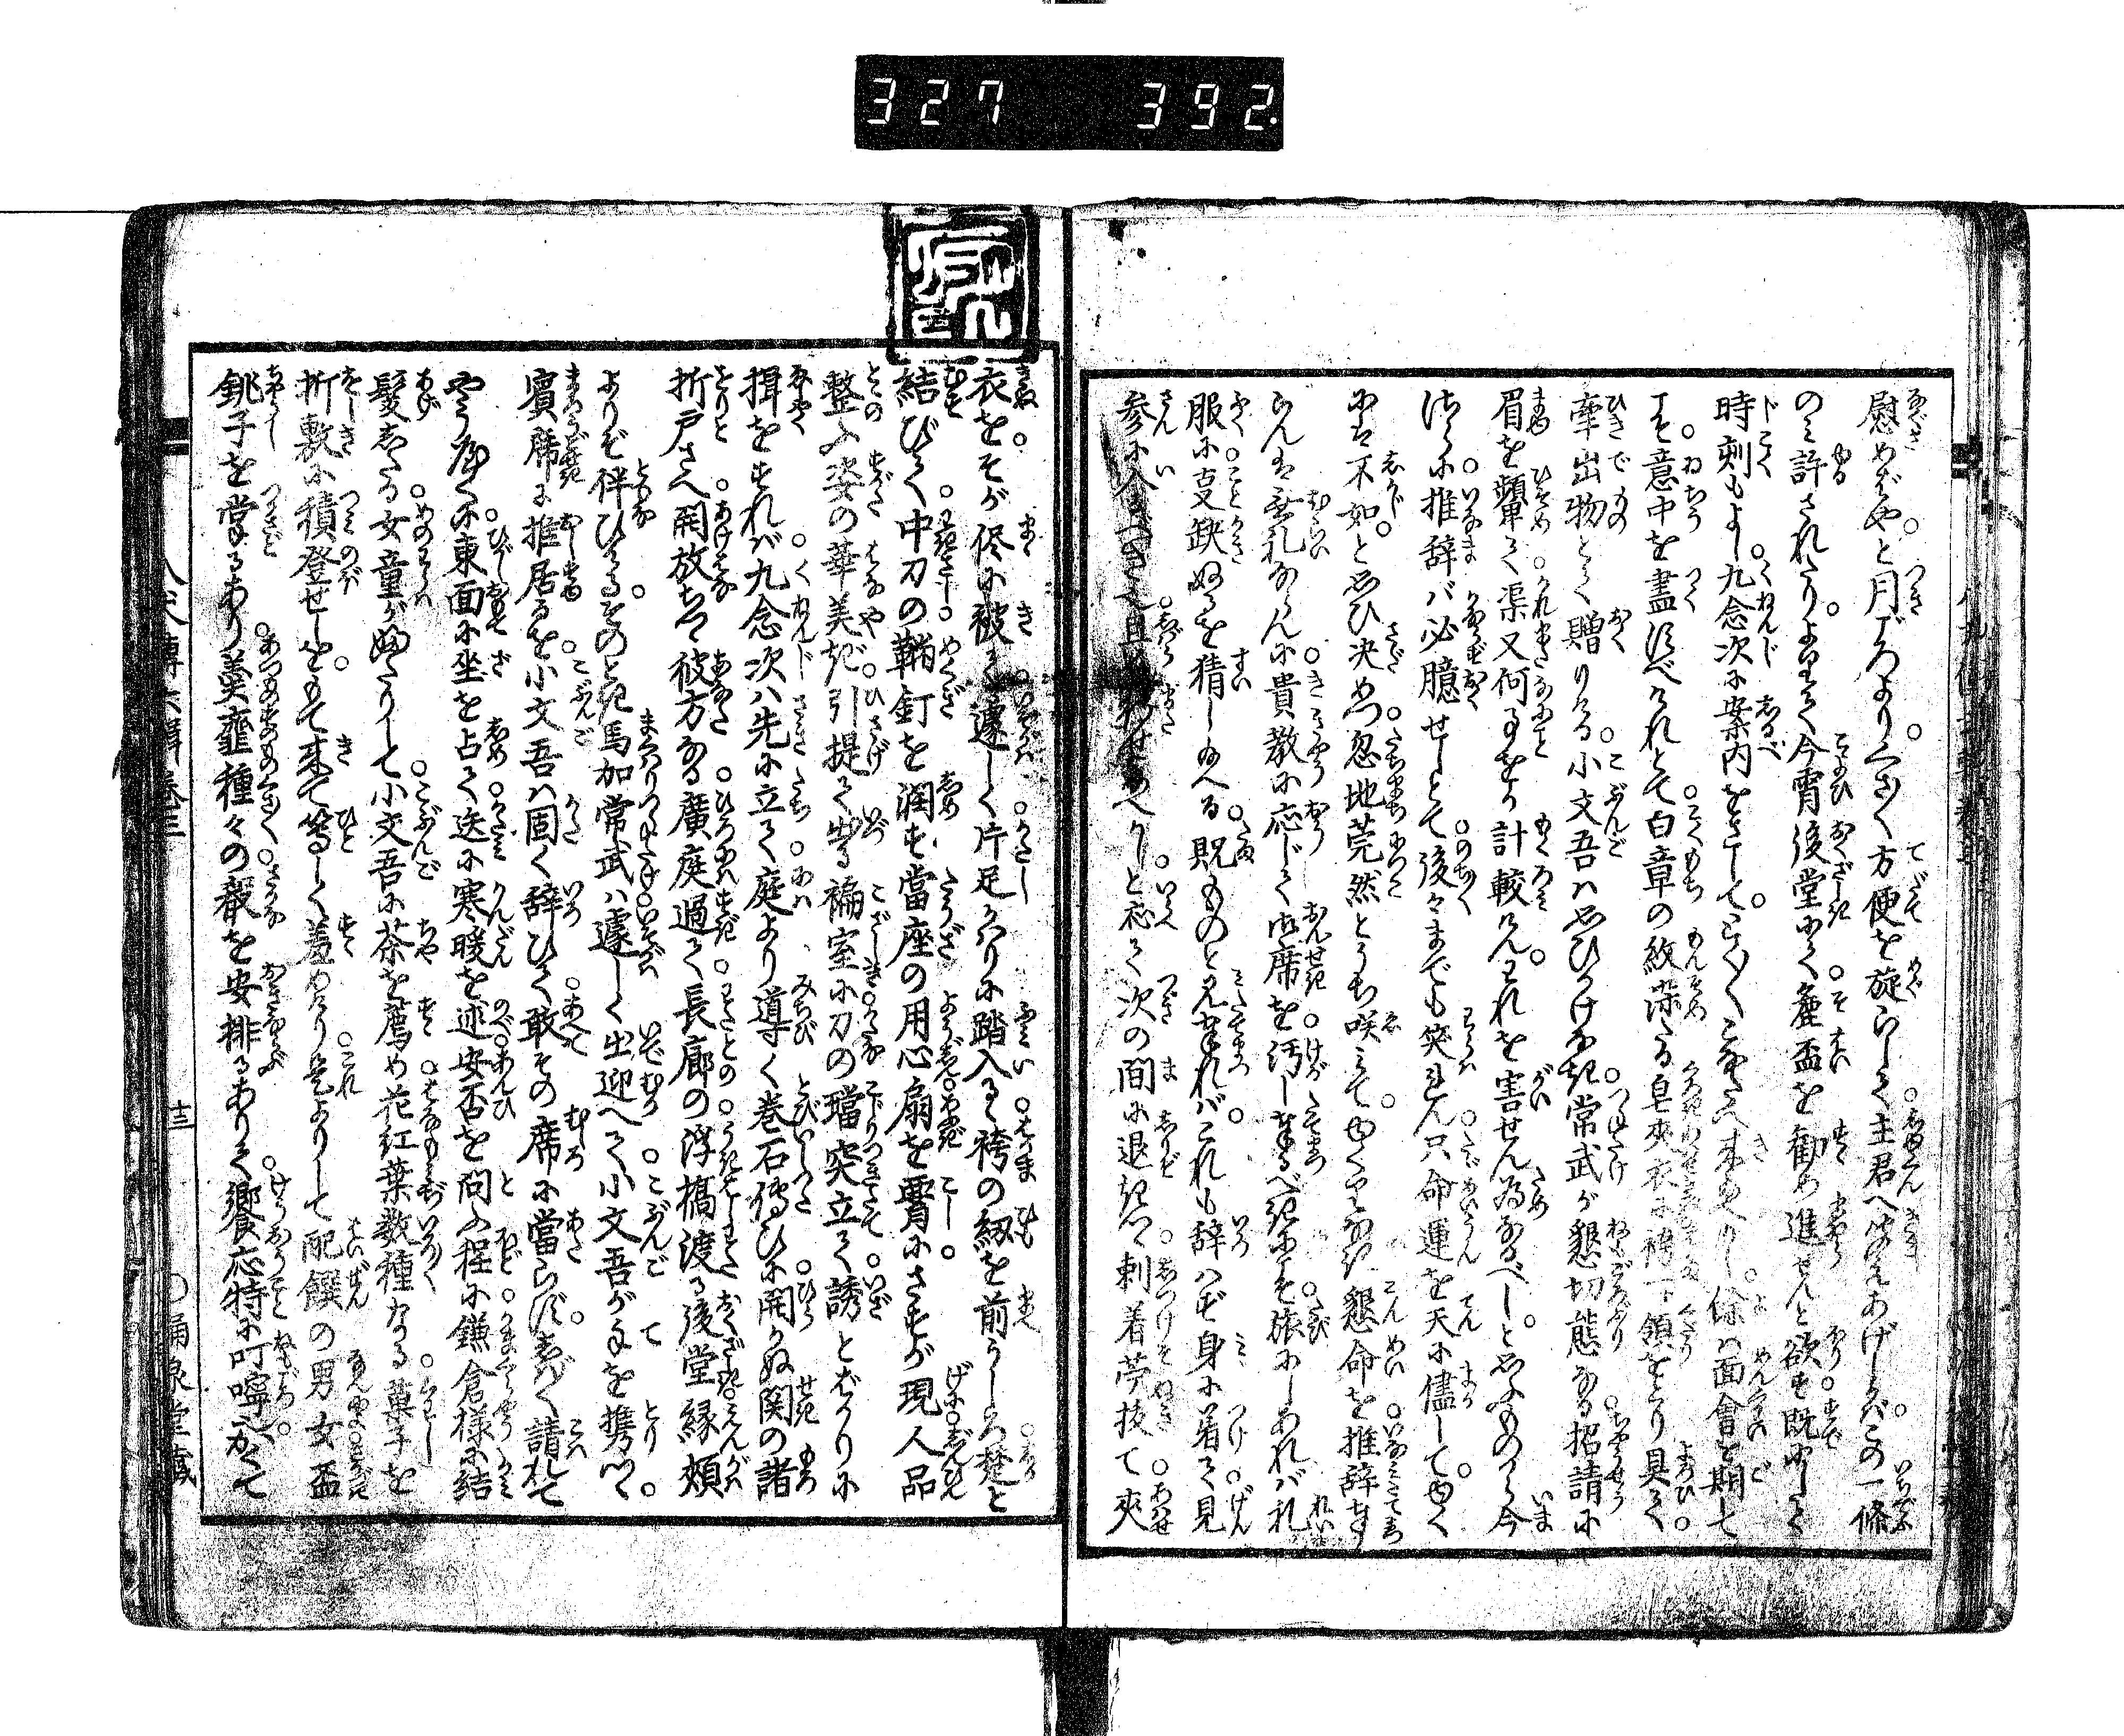 327 392.
慰めばやと月ごろよりさま〴〵方便を旋らして主君へ聞えあげしかばこの一條
のみ許されたりよりて今宵後堂にて麁盃を勧め進せんと欲す既にして
時刻もよし九念次に案内をさしてとく〳〵こなたへ来ませかし餘は面會を期して
こそ意中を盡すべけれとて白章の紋染たる皂夾衣に袴一領をとり具して
牽出物とて贈りける小文吾は思ひかけなき常武が懇切態なる招請に
眉を頻軍て渠又何事をか計較けんわれを害せん為なるべしと思ふものから今
固辞に推辞バ必臆せしとて後々までも笑れん只命運を天に儘してゆく
にも不如と思ひ决めつ忽地莞然とうち咲みてゆくりなき懇命を推辞まう
さんは無礼ならんに貴教に応じて御席を汚し奉るべきにこそ旅にしあれバ礼
服に叓缺ぬるを猜し給へる貺ものと見奉れバこれも辞はず身に着て見
参に入るべきに且
次の間に退きつ刺着苧技て夾
衣をそが侭に被て遽しく片足かけに踏入るゝ袴の紐を前うしろ楚と
結びて中刀の鞆釘を潤す當座の用心扇を腰にさすが現人品
整ふ姿の華美き引提て出る褊室に刀の璫突立て誘とばかりに
揖をすれバ九念次ハ先に立て庭より導く巻石傳ひに開かぬ関の諸
折戸さへ開放ちて彼方なる廣庭過て長廊の浮橋渡る後堂縁頬
よりぞ伴ひけるそのとき馬加常武ハ遽しく出迎へて小文吾が手を携つゝ
賓席に推居るを小文吾ハ固く辞ひて敢その席に當らず志ば〳〵請れて
やうやくに東面に坐を占て迭に寒暖を述安否を問ふ程に鎌倉様に結
髪したる女童が婢たりして小文吾に茶を薦め花紅葉数種なる菓子を
折敷に積登せしをもて来て等しく羞めけり是よりして配饌の男女盃
銚子を掌るあり羹韲種々の殽を安排るありて饗応特に叮嚀かくて
八犬傳六輯巻三
十三
○涌泉堂藏